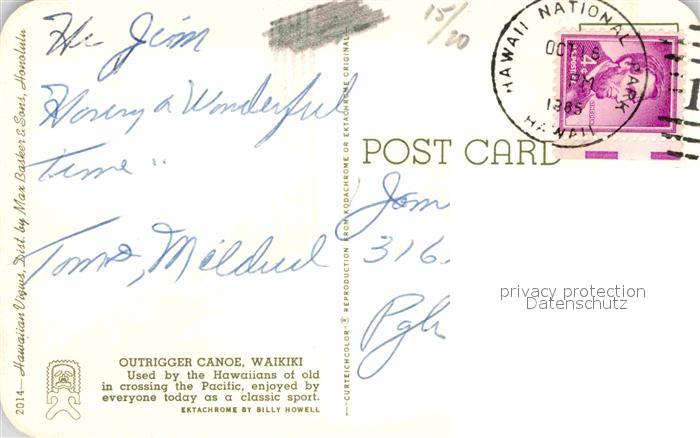 Hi Jim
Having a Wonderful
time
Tom & Mildred
15/20
HAWAII NATIONAL PARK
OCT 6
PM
1965
HAWAII
4¢
POST CARD
Jam
316
Pgh
privacy protection
Datenschutz
OUTRIGGER CANOE, WAIKIKI
Used by the Hawaiians of old
in crossing the Pacific, enjoyed by
everyone today as a classic sport.
EKTACHROME BY BILLY HOWELL
2014—Hawaiian Views, Dist. by Max Basker & Sons, Honolulu
CURTEICHCOLOR® REPRODUCTION FROM KODACHROME OR EKTACHROME ORIGINAL